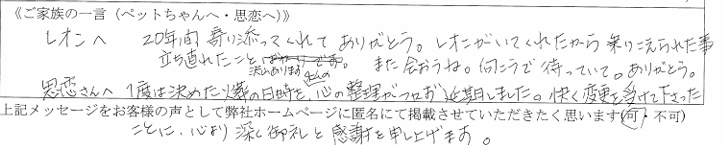 《ご家族の一言（ペットちゃんへ・思恋へ）》
レオンへ　20年間 寄り添ってくれて ありがとう。レオンがいてくれたから 乗りこえられた事
立ち直れたこと 沢山あります。また会おうね。向こうで 待っていて。ありがとう。
思恋さんへ 1度は決めた火葬の日時を、私の心の整理がつかず 延期しました。快く変更を受けて下さった
上記メッセージをお客様の声として弊社ホームページに匿名にて掲載させていただきたく思います(可・不可)
ことに、心より 深く御礼と感謝を申し上げます。